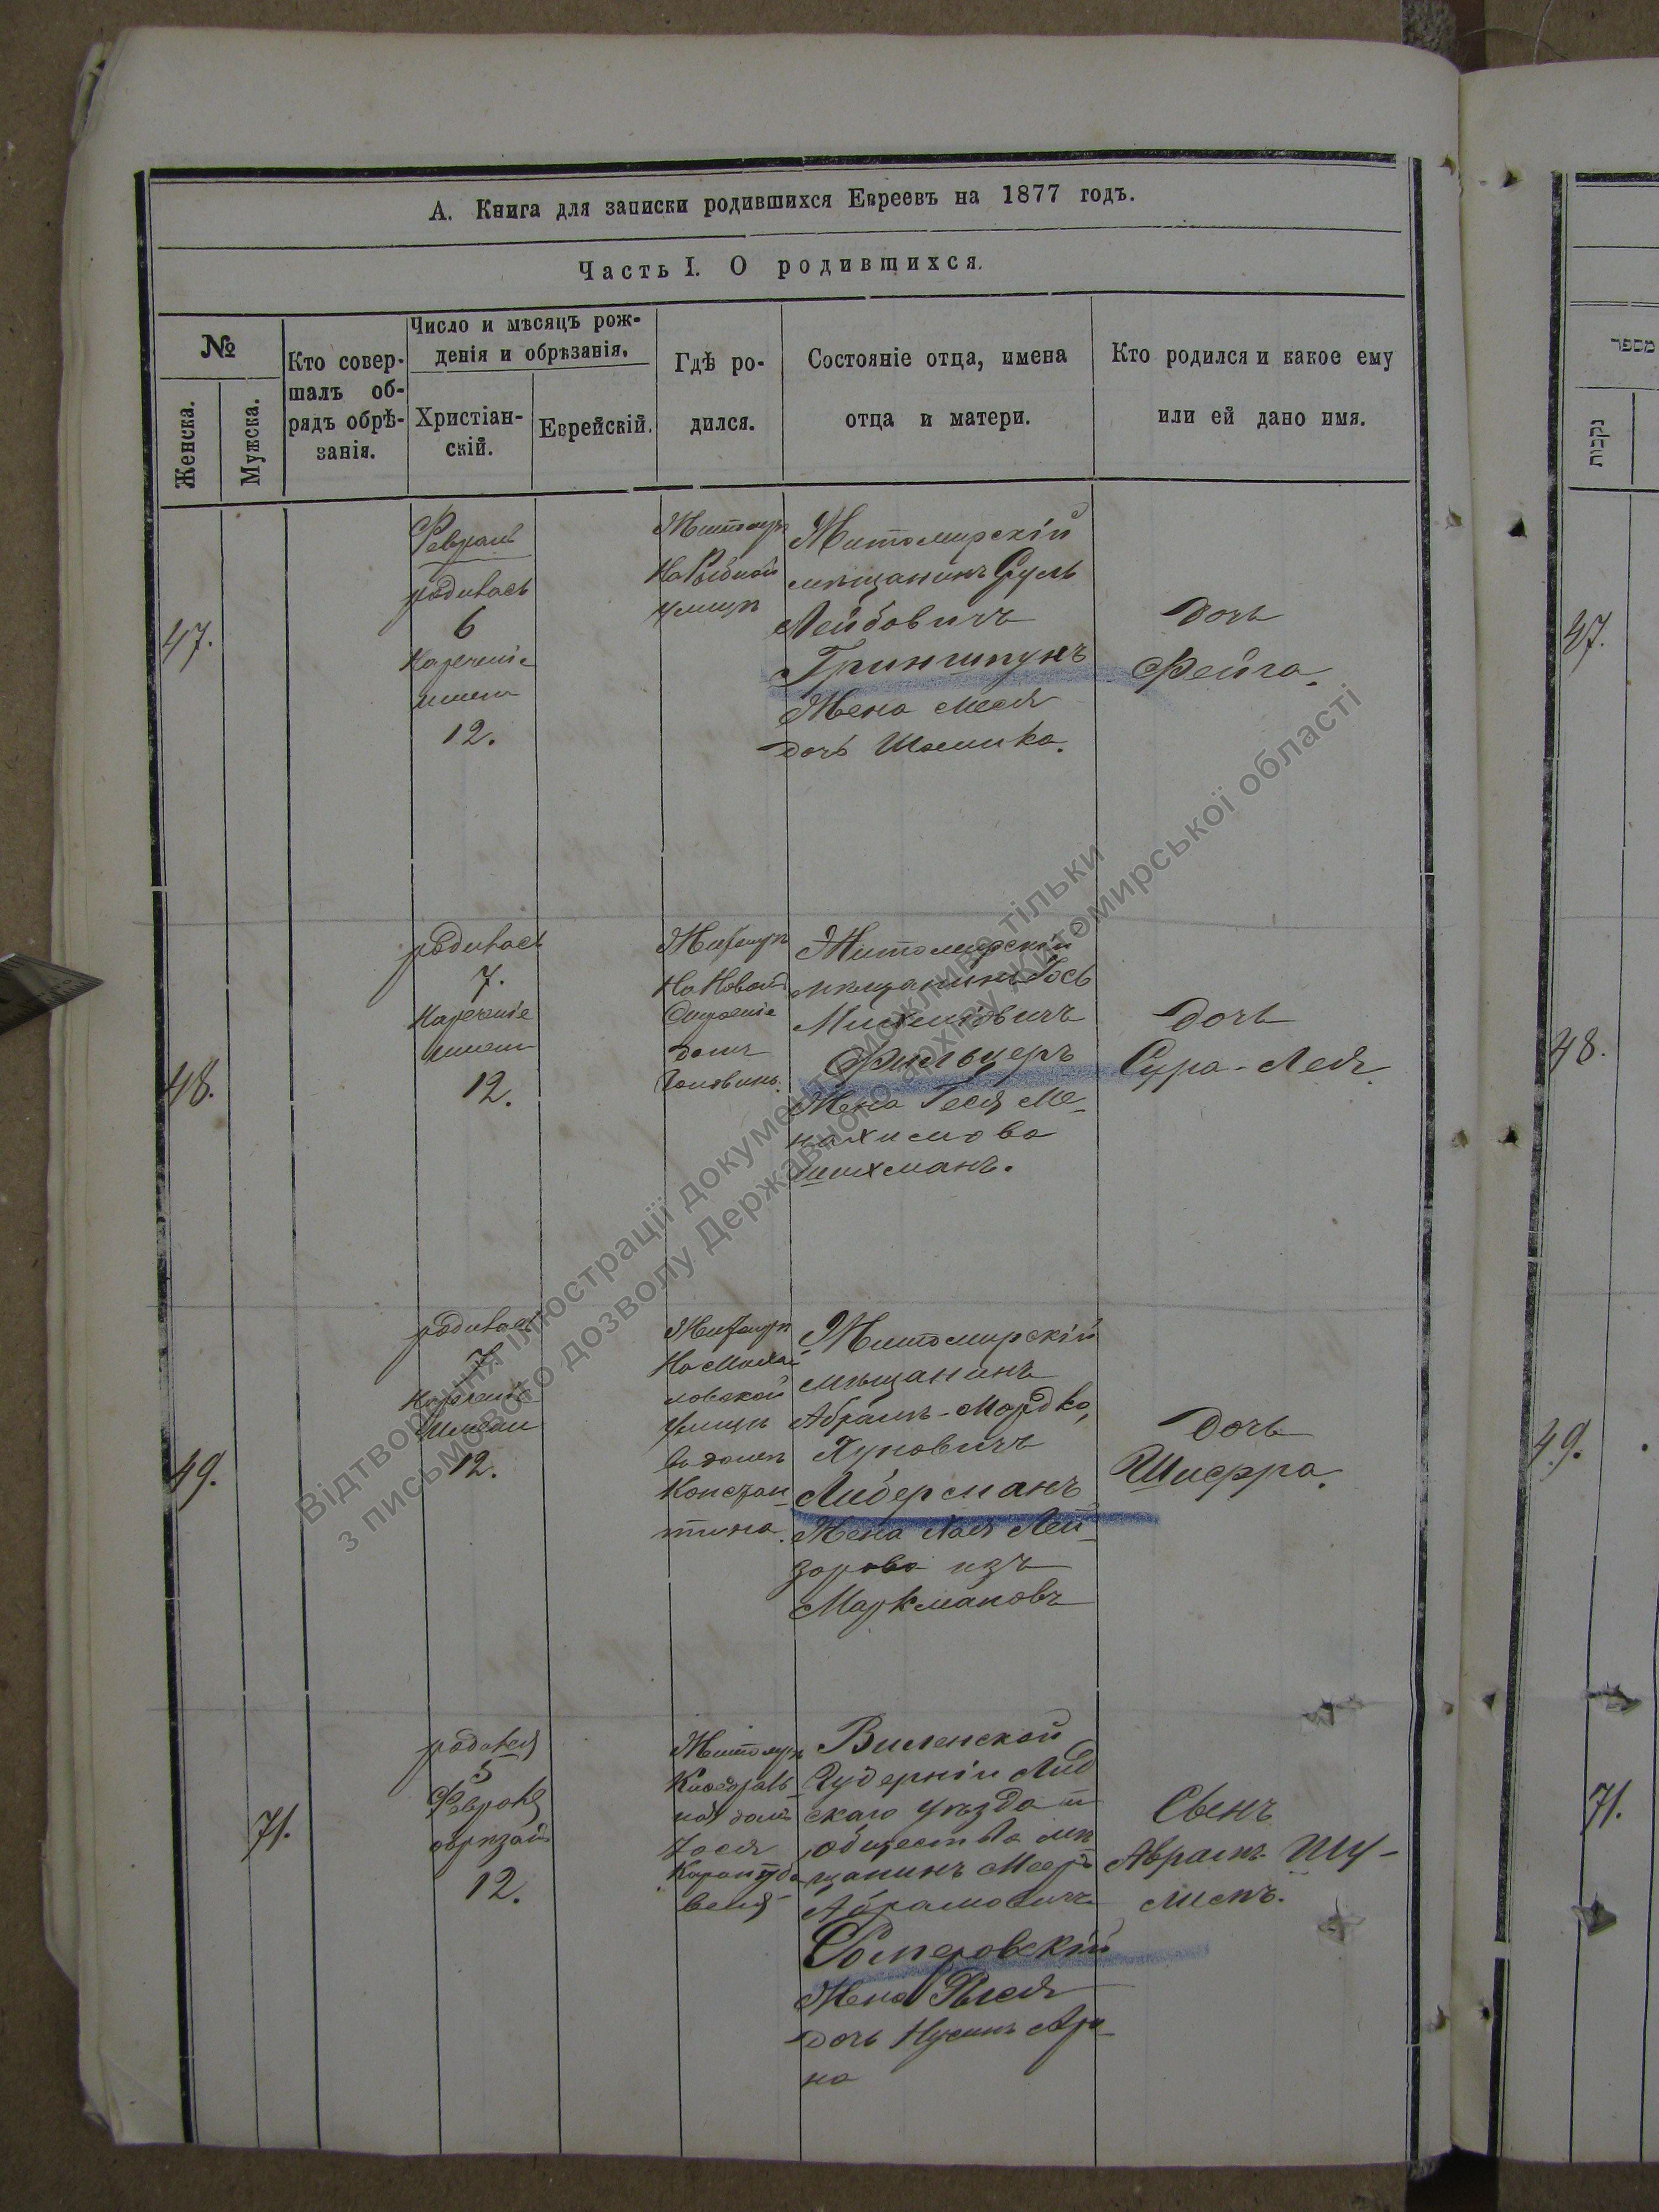 А. Книга для записки родившихся Евреевъ на 1877 годъ.
Часть I. О родившихся.
№
Женска.
Мужска.
Кто совер-
шалъ об-
рядъ обрѣ-
занія.
Число и мѣсяцъ рож-
денія и обрѣзанія.
Христіан-
скій.
Еврейскій.
Гдѣ ро-
дился.
Состояніе отца, имена
отца и матери.
Кто родился и какое ему
или ей дано имя.
47.
родилась
6
Нареченіе
имени
12.
На Рыбной
улицѣ
Житомирскій
мѣщанинъ Сруль
Лейбовичъ
Грингшпунъ
Жена Меся
дочь
дочь
Фейга.
48.
родилась
7.
Нареченіе
имени
12.
На Новомъ
Строеніе
домъ
Житомирскій
мѣщанинъ
Фильцеръ
Жена Геся Ме-
нахимова
шихманъ.
дочь
Сура-Лея.
49.
родилась
7
Нареченіе
имени
12.
улицѣ
въ домѣ
Констан-
тина.
Житомирскій
мѣщанинъ
Абрамъ-Мордко,
Либерманъ
Жена Хая Лей-
зорова изъ
Маркмановъ
дочь
Шифра.
71.
родился
5
Февраля
обрѣзанъ
12.
Кафедраль-
ная домъ
Іося
Виленской
Губерніи Лид
скаго уѣзда
общества мѣ
щанинъ Мееръ
Абрамовичъ
Жена
дочь
на
Сынъ
Абрамъ-Шу-
лимъ.
מספר
נקבות
47.
48.
49.
71.
Відтворення ілюстрації документу можливе тільки
з письмового дозволу Державного архіву Житомирської області